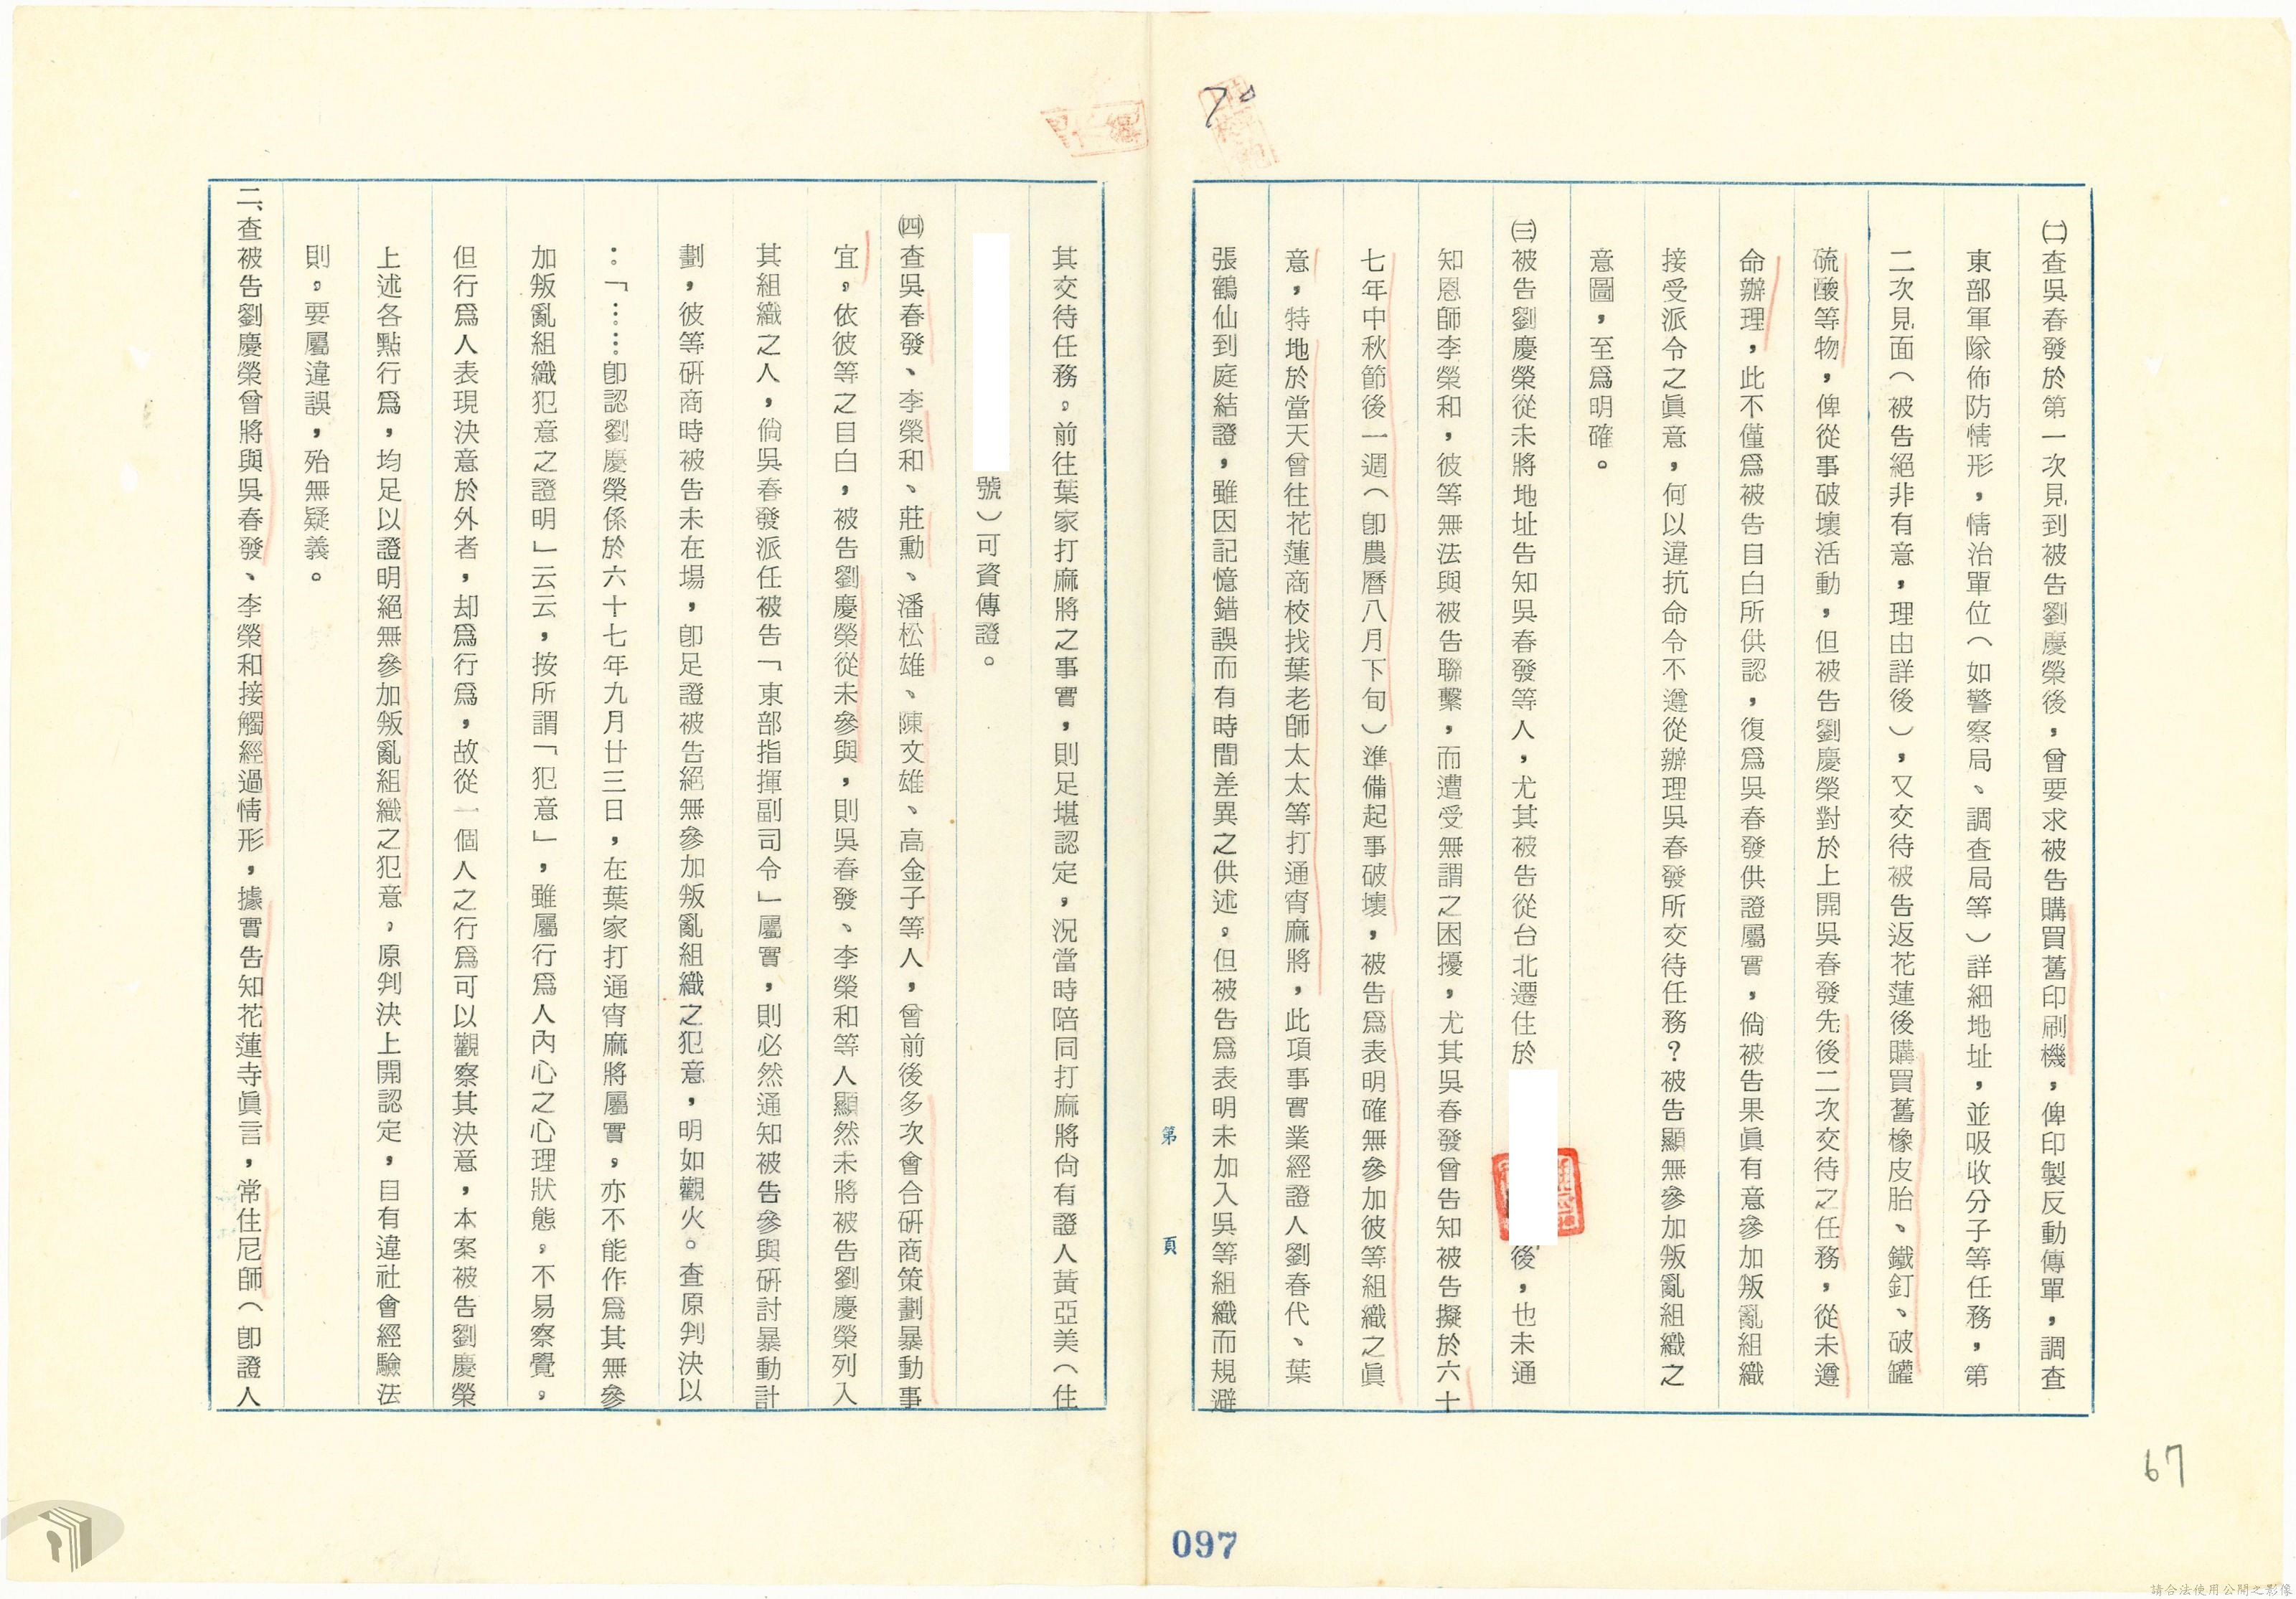 ㈡查吳春發於第一次見到被告劉慶榮後，曾要求被告購買舊印刷機，俾印製反動傳單，調查
東部軍隊佈防情形，情治單位（如警察局、調查局等）詳細地址，並吸收分子等任務，第
二次見面（被告絕非有意，理由詳後），又交待被告返花蓮後購買舊橡皮胎、鐵釘、破罐
硫酸等物，俾從事破壞活動，但被告劉慶榮對於上開吳春發先後二次交待之任務，從未遵
命辦理，此不僅爲被告自白所供認，復爲吳春發供證屬實，倘被告果眞有意參加叛亂組織
接受派令之眞意，何以違抗命令不遵從辦理吳春發所交待任務？被告顯無參加叛亂組織之
意圖，至爲明確。
㈢被告劉慶榮從未將地址告知吳春發等人，尤其被告從台北遷住於
後，也未通
知恩師李榮和，彼等無法與被告聯繫，而遭受無謂之困擾，尤其吳春發曾告知被告擬於六十
七年中秋節後一週（卽農曆八月下旬）準備起事破壞，被告爲表明確無參加彼等組織之眞
意，特地於當天曾往花蓮商校找葉老師太太等打通宵麻將，此項事實業經證人劉春代、葉
張鶴仙到庭結證，雖因記憶錯誤而有時間差異之供述，但被告爲表明未加入吳等組織而規避
第　頁
其交待任務，前往葉家打麻將之事實，則足堪認定，況當時陪同打麻將尙有證人黃亞美（住
號）可資傳證。
㈣查吳春發、李榮和、莊勳、潘松雄、陳文雄、高金子等人，曾前後多次會合硏商策劃暴動事
宜，依彼等之自白，被告劉慶榮從未參與，則吳春發、李榮和等人顯然未將被告劉慶榮列入
其組織之人，倘吳春發派任被告「東部指揮副司令」屬實，則必然通知被告參與硏討暴動計
劃，彼等硏商時被告未在場，卽足證被告絕無參加叛亂組織之犯意，明如觀火。查原判決以
：「……卽認劉慶榮係於六十七年九月廿三日，在葉家打通宵麻將屬實，亦不能作爲其無參
加叛亂組織犯意之證明」云云，按所謂「犯意」，雖屬行爲人內心之心理狀態，不易察覺，
但行爲人表現決意於外者，却爲行爲，故從一個人之行爲可以觀察其決意，本案被告劉慶榮
上述各點行爲，均足以證明絕無參加叛亂組織之犯意，原判決上開認定，自有違社會經驗法
則，要屬違誤，殆無疑義。
二、查被告劉慶榮曾將與吳春發、李榮和接觸經過情形，據實告知花蓮寺眞言，常住尼師（卽證人
67
097
請合法使用公開之影像